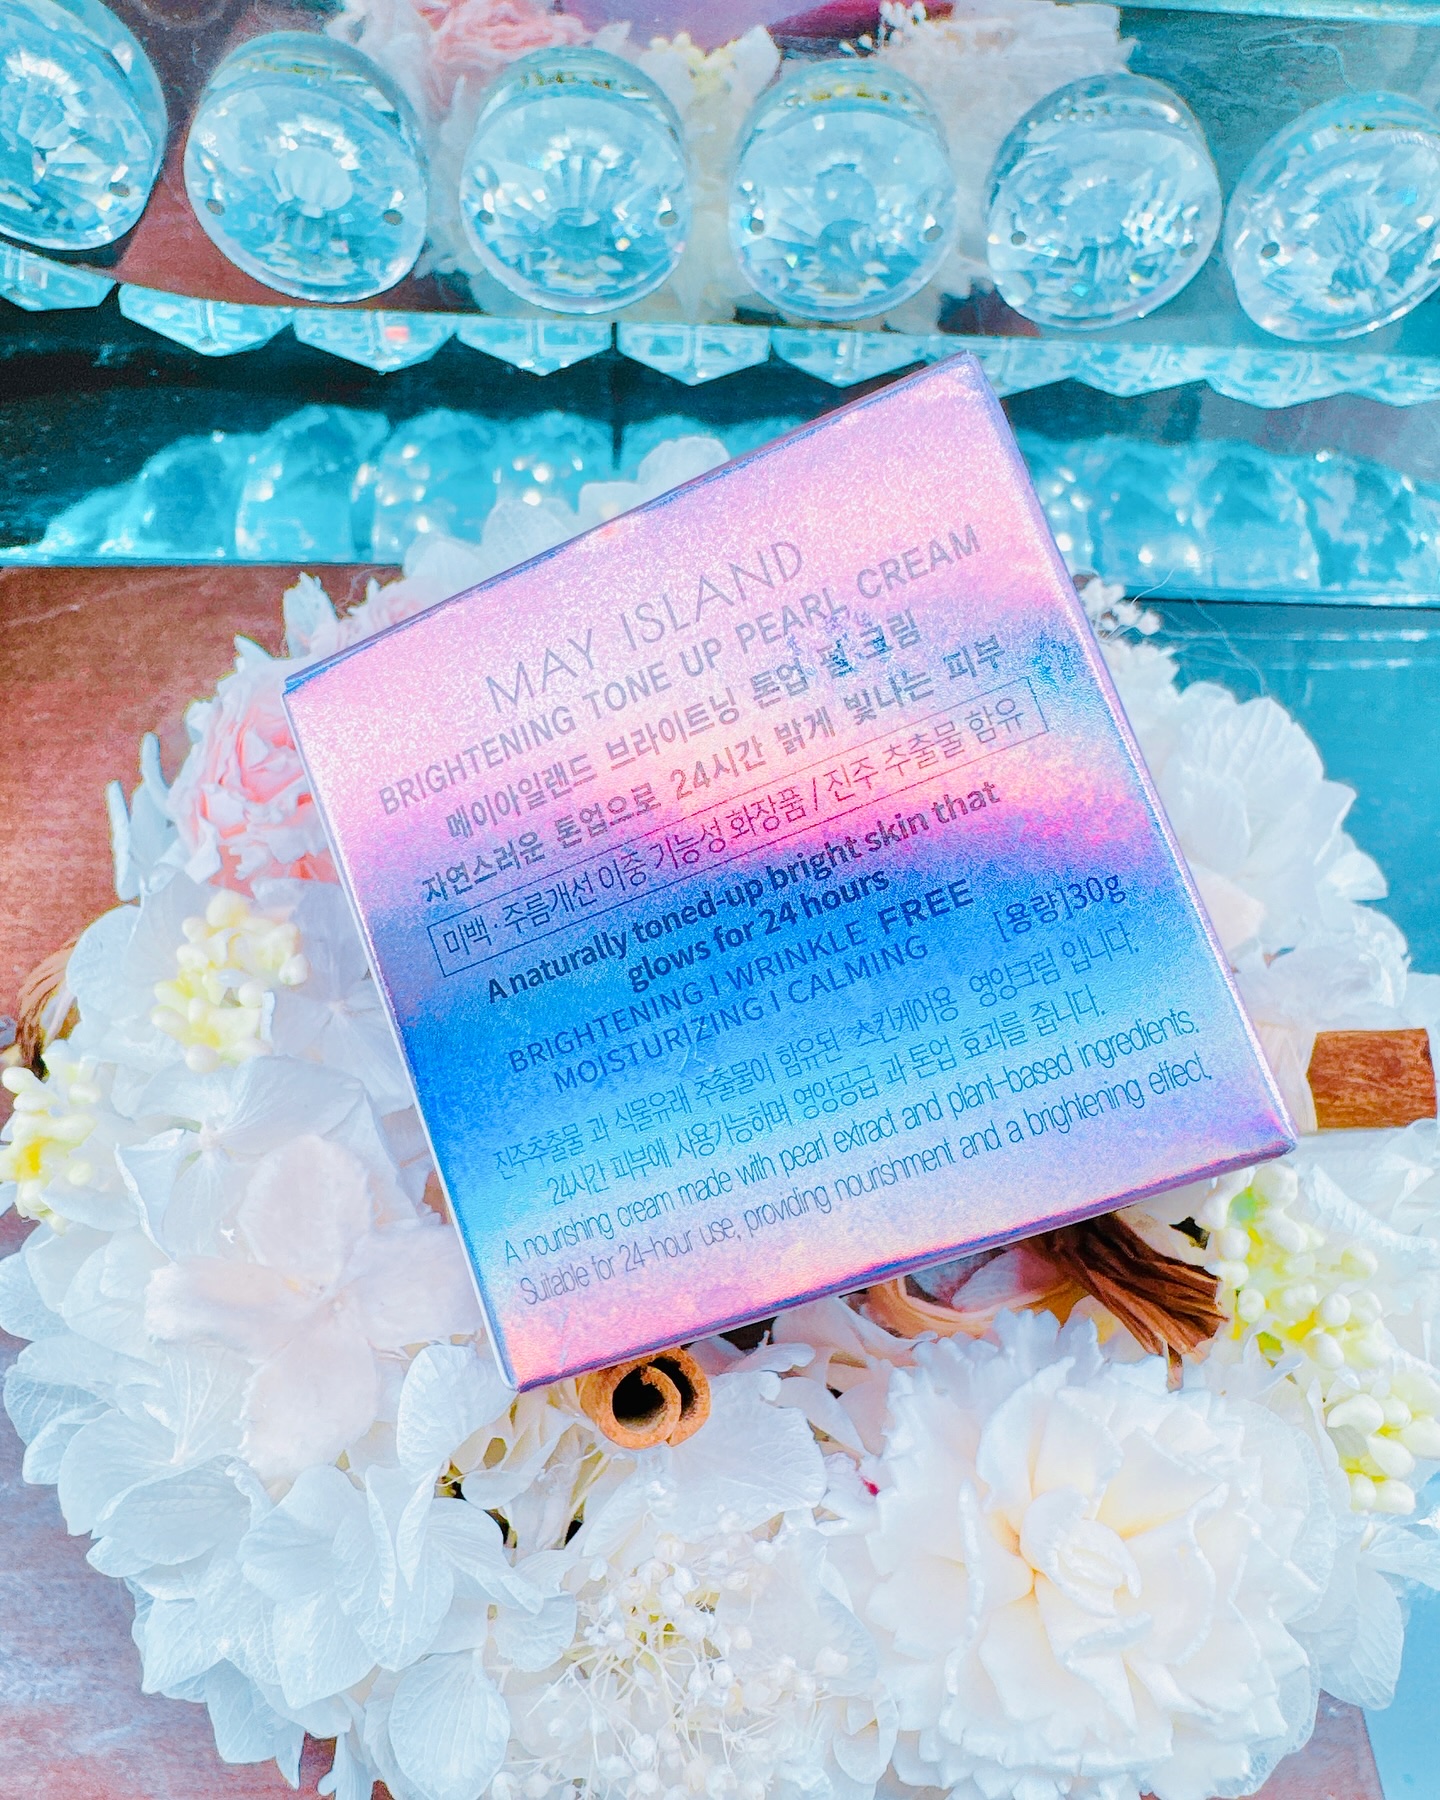 MAY ISLAND
BRIGHTENING TONE UP PEARL CREAM
메이아일랜드 브라이트닝 톤업 펄 크림
자연스러운 톤업으로 24시간 밝게 빛나는 피부
미백·주름개선 이중 기능성 화장품 / 진주 추출물 함유
A naturally toned-up bright skin that
glows for 24 hours
BRIGHTENING I WRINKLE FREE
MOISTURIZING I CALMING
[용량]30g
진주추출물 과 식물유래 추출물이 함유된 스킨케어용 영양크림 입니다.
24시간 피부에 사용가능하며 영양공급 과 톤업 효과를 줍니다.
A nourishing cream made with pearl extract and plant-based ingredients.
Suitable for 24-hour use, providing nourishment and a brightening effect.